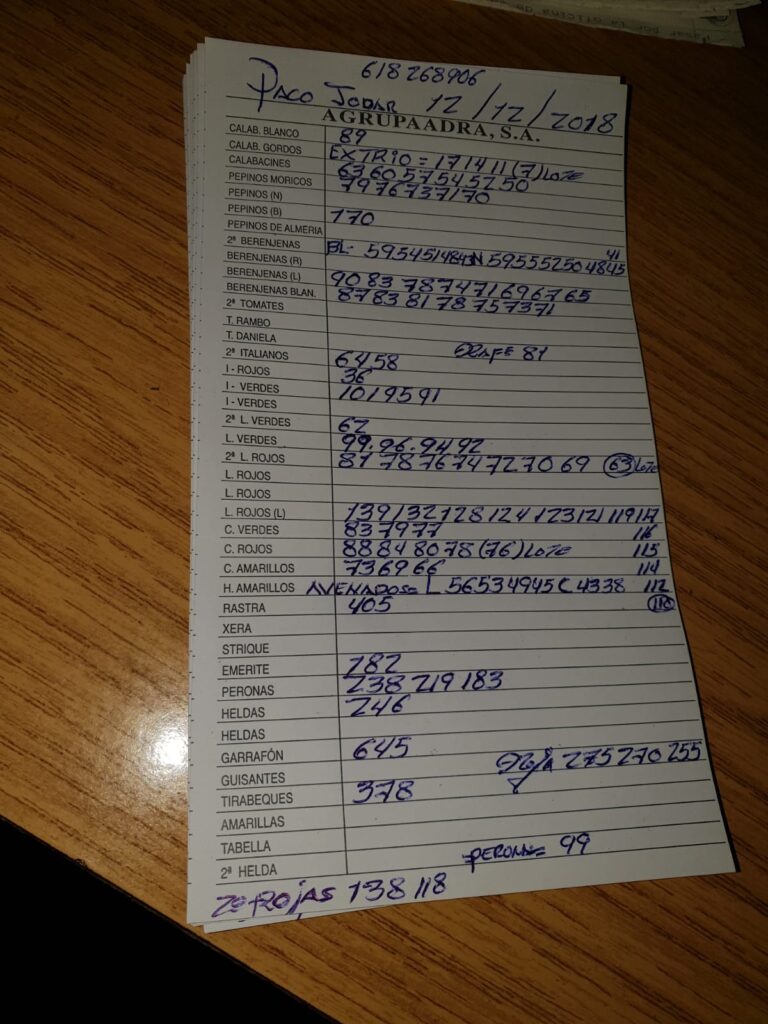 618268906
PACO JODAR 12/12/2018
AGRUPAADRA, S.A.
CALAB. BLANCO 89
CALAB. GORDOS EXTRIO = 171411(7)LOTE
CALABACINES 63 60 57 54 52 50
PEPINOS MORICOS 79 76 73 71 70
PEPINOS (N)
PEPINOS (B) 170
PEPINOS DE ALMERIA
2ª BERENJENAS BL- 59 54 51 48 43 N 59 55 52 50 48 45 41
BERENJENAS (R)
BERENJENAS (L) 90 83 78 74 71 69 67 65
BERENJENAS BLAN. 87 83 81 78 75 73 71
2ª TOMATES
T. RAMBO
T. DANIELA 81
2ª ITALIANOS 64 58
I - ROJOS 36
I - VERDES 101 95 91
I - VERDES
2ª L. VERDES 62
L. VERDES 99.96.94 92
2ª L. ROJOS 81 78 76 74 72 70 69 (63) LOTE
L. ROJOS
L. ROJOS
L. ROJOS (L) 139 132 128 124 123 121 119 117
C. VERDES 83 79 77 116
C. ROJOS 88 84 80 78 (76) LOTE 115
C. AMARILLOS 73 69 66 114
H. AMARILLOS AVENADOS= L 56 53 49 45 C 43 38 112
RASTRA 405 (110)
XERA
STRIQUE
EMERITE 282
PERONAS 238 219 183
HELDAS 246
HELDAS
GARRAFÓN 645
GUISANTES 275 270 255
TIRABEQUES 378
AMARILLAS
TABELLA
2ª HELDA PERONA= 99
2ª ROJAS 138 118